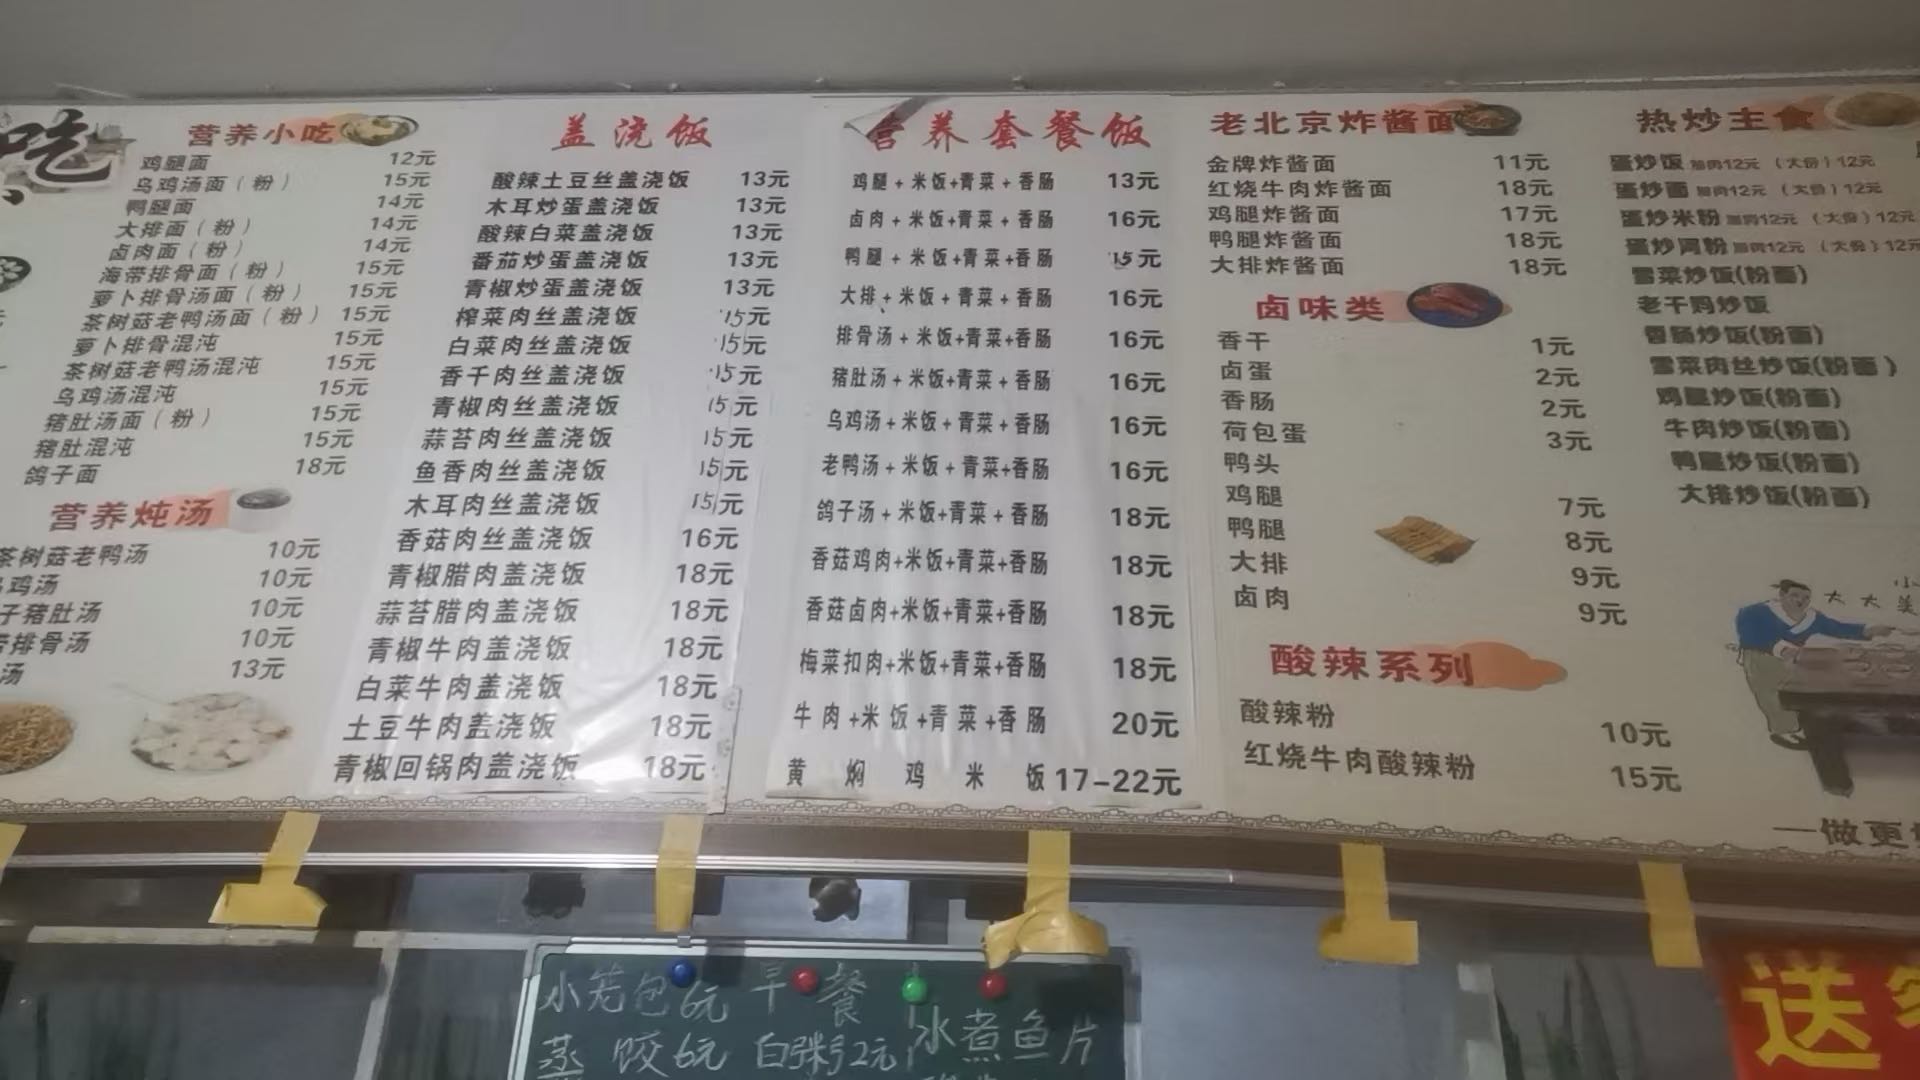 吃
营养小吃
鸡腿面 12元
乌鸡汤面（粉） 15元
鸭腿面 14元
大排面（粉） 14元
卤肉面（粉） 14元
海带排骨面（粉） 15元
萝卜排骨汤面（粉） 15元
茶树菇老鸭汤面（粉） 15元
萝卜排骨混沌 15元
茶树菇老鸭汤混沌 15元
乌鸡汤混沌 15元
猪肚汤面（粉） 15元
猪肚混沌 15元
鸽子面 18元
营养炖汤
茶树菇老鸭汤 10元
鸡汤 10元
子猪肚汤 10元
排骨汤 10元
汤 13元
盖浇饭
酸辣土豆丝盖浇饭 13元
木耳炒蛋盖浇饭 13元
酸辣白菜盖浇饭 13元
番茄炒蛋盖浇饭 13元
青椒炒蛋盖浇饭 13元
榨菜肉丝盖浇饭 15元
白菜肉丝盖浇饭 15元
香干肉丝盖浇饭 15元
青椒肉丝盖浇饭 15元
蒜苔肉丝盖浇饭 15元
鱼香肉丝盖浇饭 15元
木耳肉丝盖浇饭 15元
香菇肉丝盖浇饭 16元
青椒腊肉盖浇饭 18元
蒜苔腊肉盖浇饭 18元
青椒牛肉盖浇饭 18元
白菜牛肉盖浇饭 18元
土豆牛肉盖浇饭 18元
青椒回锅肉盖浇饭 18元
营养套餐饭
鸡腿+米饭+青菜+香肠 13元
卤肉+米饭+青菜+香肠 16元
鸭腿+米饭+青菜+香肠 15元
大排+米饭+青菜+香肠 16元
排骨汤+米饭+青菜+香肠 16元
猪肚汤+米饭+青菜+香肠 16元
乌鸡汤+米饭+青菜+香肠 16元
老鸭汤+米饭+青菜+香肠 16元
鸽子汤+米饭+青菜+香肠 18元
香菇鸡肉+米饭+青菜+香肠 18元
香菇卤肉+米饭+青菜+香肠 18元
梅菜扣肉+米饭+青菜+香肠 18元
牛肉+米饭+青菜+香肠 20元
黄焖鸡米饭 17-22元
老北京炸酱面
金牌炸酱面 11元
红烧牛肉炸酱面 18元
鸡腿炸酱面 17元
鸭腿炸酱面 18元
大排炸酱面 18元
卤味类
香干 1元
卤蛋 2元
香肠 2元
荷包蛋 3元
鸭头
鸡腿 7元
鸭腿 8元
大排 9元
卤肉 9元
酸辣系列
酸辣粉 10元
红烧牛肉酸辣粉 15元
热炒主食
蛋炒饭 加肉12元 （大份）12元
蛋炒面 加肉12元 （大份）12元
蛋炒米粉 加肉12元 （大份）12元
蛋炒河粉 加肉12元 （大份）12元
雪菜炒饭(粉面)
老干妈炒饭
香肠炒饭(粉面)
雪菜肉丝炒饭(粉面)
鸡腿炒饭(粉面)
牛肉炒饭(粉面)
鸭腿炒饭(粉面)
大排炒饭(粉面)
大大美
一做更
小笼包6元 早餐
蒸饺6元 白粥2元 水煮鱼片
送